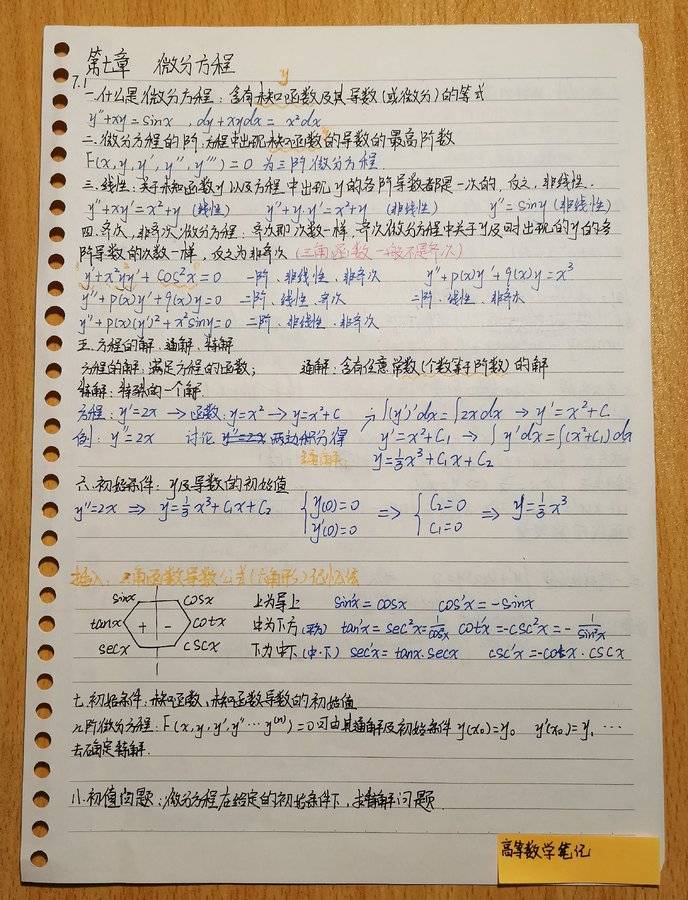 第七章 微分方程
7.1
y
一.什么是微分方程:含有未知函数及其导数(或微分)的等式
y''+xy=sinx , dy+xydx= x²dx
二.微分方程的阶:方程中出现未知函数的导数的最高阶数
F(x,y,y',y'',y''')=0 为三阶微分方程
三.线性:关于未知函数y以及方程中出现y的各阶导数都是一次的,反之,非线性.
y''+xy'=x²+y (线性) y''+y·y'=x²+y (非线性) y''=siny (非线性)
四.齐次,非齐次微分方程:齐次即次数一样,齐次微分方程中关于y及时出现的y的各
阶导数的次数一样,反之为非齐次 (三角函数一般不是齐次)
y'+x²yy'+cos²x=0 一阶、非线性、非齐次 y''+p(x)y'+q(x)y=x³
y''+p(x)y'+q(x)y=0 二阶、线性、齐次 二阶、线性、非齐次
y''+p(x)(y')²+x²siny=0 二阶、非线性、非齐次
五.方程的解、通解、特解
方程的解:满足方程的函数; 通解:含有任意常数(个数等于阶数)的解
特解:特殊的一个解.
方程:y'=2x → 函数:y=x² → y=x²+C ∫(y')'dx=∫2xdx → y'=x²+C
例: y''=2x 讨论 y''=2x 两边积分得 y'=x²+C₁ → ∫y'dx=∫(x²+C₁)dx
通解: y=⅓x³+C₁x+C₂
六.初始条件:y及导数的初始值
y''=2x ⇒ y=⅓x³+C₁x+C₂ { y(0)=0 y'(0)=0 ⇒ { C₂=0 C₁=0 ⇒ y=⅓x³
插入:三角函数导数公式(六角形)记忆法
sinx cosx 上为导上 sin'x=cosx cos'x=-sinx
tanx + - cotx 中为下方(平方) tan'x=sec²x=1/cos²x cot'x=-csc²x=-1/sin²x
secx cscx 下为中下(中·下) sec'x=tanx·secx csc'x=-cotx·cscx
1
七.初始条件:未知函数,未知函数导数的初始值
n阶微分方程:F(x,y,y',y''…y⁽ⁿ⁾)=0可由其通解及初始条件 y(x₀)=y₀ y'(x₀)=y₁ …
去确定特解.
八.初值问题:微分方程在给定的初始条件下,求特解问题
高等数学笔记